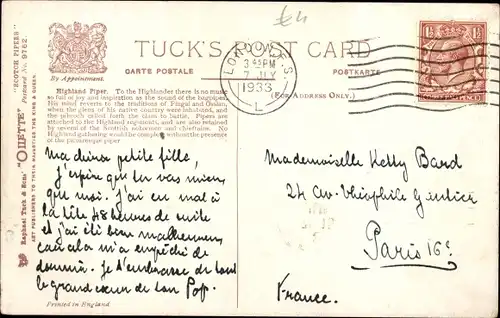 £4
"SCOTCH PIPER"
Postcard No. 9762.
By Appointment.
TUCK'S POST CARD
CARTE POSTALE
POSTKARTE
(FOR ADDRESS ONLY.)
LONDON
3 45 PM
7 JLY
1933
Highland Piper. To the Highlander there is no music
so full of joy and inspiration as the sound of the bagpipes.
His mind reverts to the traditions of Fingal and Ossian,
when the glens of his native country were inhabited, and
the pibroch called forth the clans to battle. Pipers are
attached to the Highland regiments, and are also retained
by several of the Scottish noblemen and chieftains. No
Highland gathering would be complete without the presence
of the picturesque piper
Raphael Tuck & Sons' "OILETTE"
ART PUBLISHERS TO THEIR MAJESTIES THE KING & QUEEN.
Ma petite fille,
J'espère que tu vas mieux
que moi. J'ai eu mal à
la tête 48 heures de suite
et j'ai été bien malheureux
car cela m'a empêché de
dormir. Je t'embrasse de tout
le grand cœur de ton Pop.
Mademoiselle Ketty Bard
24 Av. Théophile Gautier
Paris 16e
France.
Printed in England